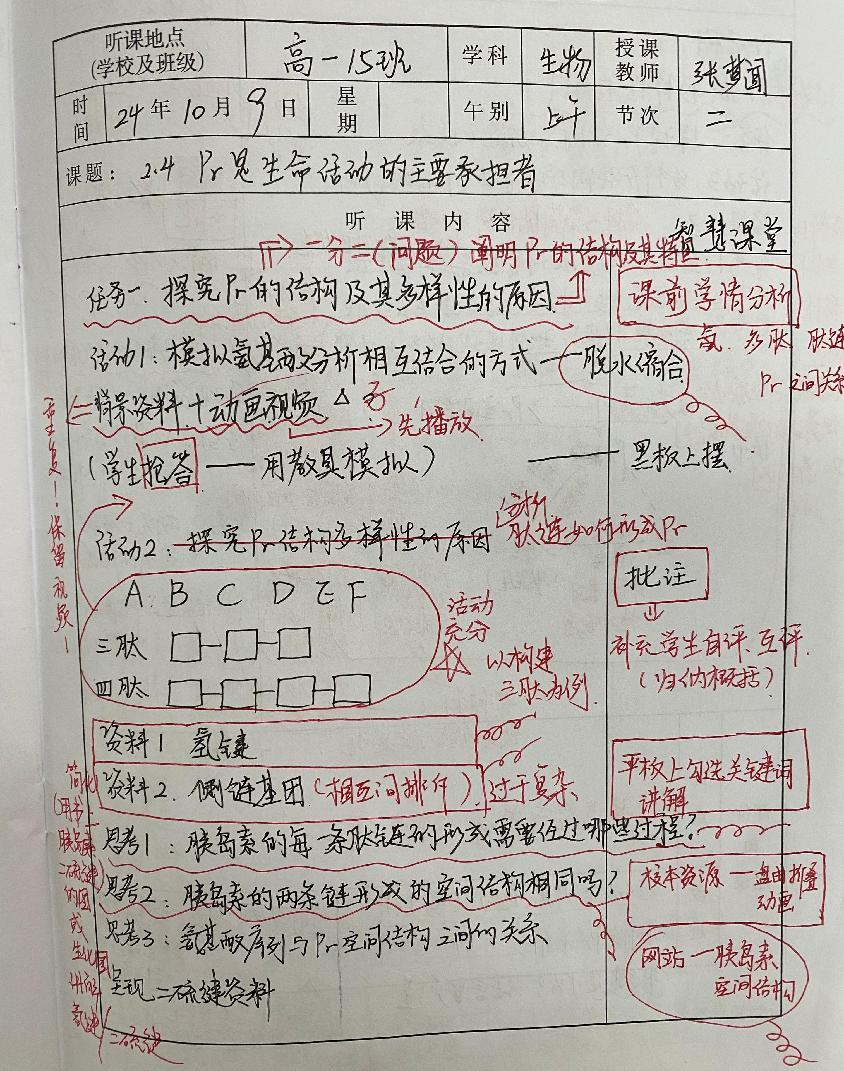 听课地点
(学校及班级)
高一15班
学科
生物
授课
教师
时间
24年10月9日
星期
午别
上午
节次
二
课题：2.4 Pr是生命活动的主要承担者
听课内容
智慧课堂
一分二(问题) 阐明Pr的结构及其特
任务一. 探究Pr的结构及其多样性的原因
课前学情分析
氨. 多肽 肽链
Pr空间关系
活动1：模拟氨基酸分析相互结合的方式——脱水缩合
背景资料+动画视频
先播放
重复！保留视频！
(学生抢答——用教具模拟)
——黑板上摆
分析
肽链如何形成Pr
活动2：探究Pr结构多样性的原因
批注
A B C D E F
三肽
四肽
活动
充分
以构建
三肽为例.
补充学生自评、互评.
(归纳概括)
资料1 氢键
资料2. 侧链基团(相互间排斥)
过于复杂
平板上勾选关键词
讲解
思考1：胰岛素的每一条肽链的形成需要经过哪些过程?
思考2：胰岛素的两条链形成的空间结构相同吗?
校本资源—盘曲折叠
动画
思考3：氨基酸序列与Pr空间结构之间的关系
网站—胰岛素
空间结构
呈现二硫键资料
简化
胰岛素
二硫键
的图
或
氢键
二硫键